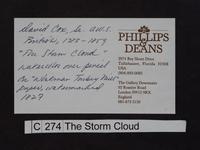 David Cox, Sr. O.W.S.
British, 1783 - 1859
"The Storm Cloud"
watercolor over pencil
on "Whatman Turkey Mill"
paper, watermarked
1827
PHILLIPS
&
DEANS
2974 Bay Shore Drive
Tallahassee, Florida 32308
USA
The Gallery Downstairs
92 Rossiter Road
London SW12 9RX
England
081-673 5150
C 274 The Storm Cloud